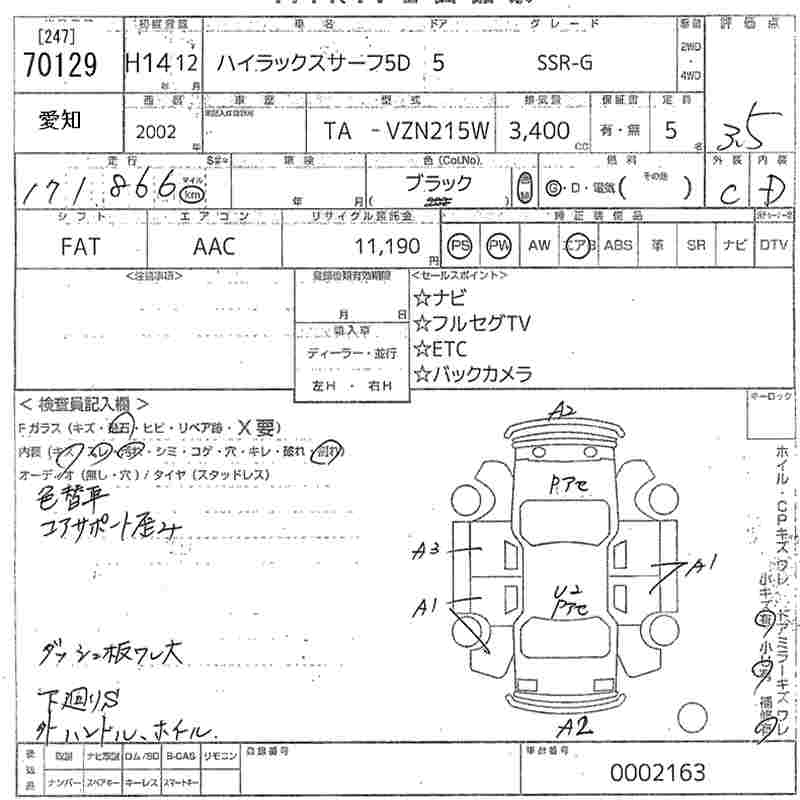 車名 ドア グレード 評価点
[247]
70129 H14 12 ハイラックスサーフ5D 5 SSR-G 2WD・4WD
年 月
西暦 車歴 型式 排気量 保証書 定員
愛知 2002 年 TA -VZN215W 3,400 CC 有・無 5 名 3.5
走行 車検 色(Col.No) 燃料 外装 内装
171866 マイル km 年 月 ブラック 202 G・D・電気( その他 ) C D
シフト エアコン リサイクル預託金 純正装備品
FAT AAC 11,190円 PS PW AW エアB ABS 革 SR ナビ DTV
<注意事項> 登録書類有効期限 <セールスポイント>
月 日
輸入車
ディーラー・並行
左H ・ 右H
☆ナビ
☆フルセグTV
☆ETC
☆バックカメラ
キーロック
< 検査員記入欄 >
Fガラス (キズ・飛石・ヒビ・リペア跡・X要)
内装 (キズ・スレ・汚れ・シミ・コゲ・穴・キレ・破れ・割れ)
オーディオ (無し・穴) / タイヤ (スタッドレス)
色替車
コアサポート歪み
ダッシュ板ワレ大
下廻りS
外ハンドル、ホイル.
A2
Pアセ
A3
A1
A1
U2
Pアセ
A2
ホイル・CPキズワレ ドアミラーキズワレ
小キズ有 小凹有 補修有
後送品 取説 ナビ取説 ロム/SD B-CAS リモコン 登録番号 車台番号
ナンバー スペアキー キーレス スマートキー 0002163